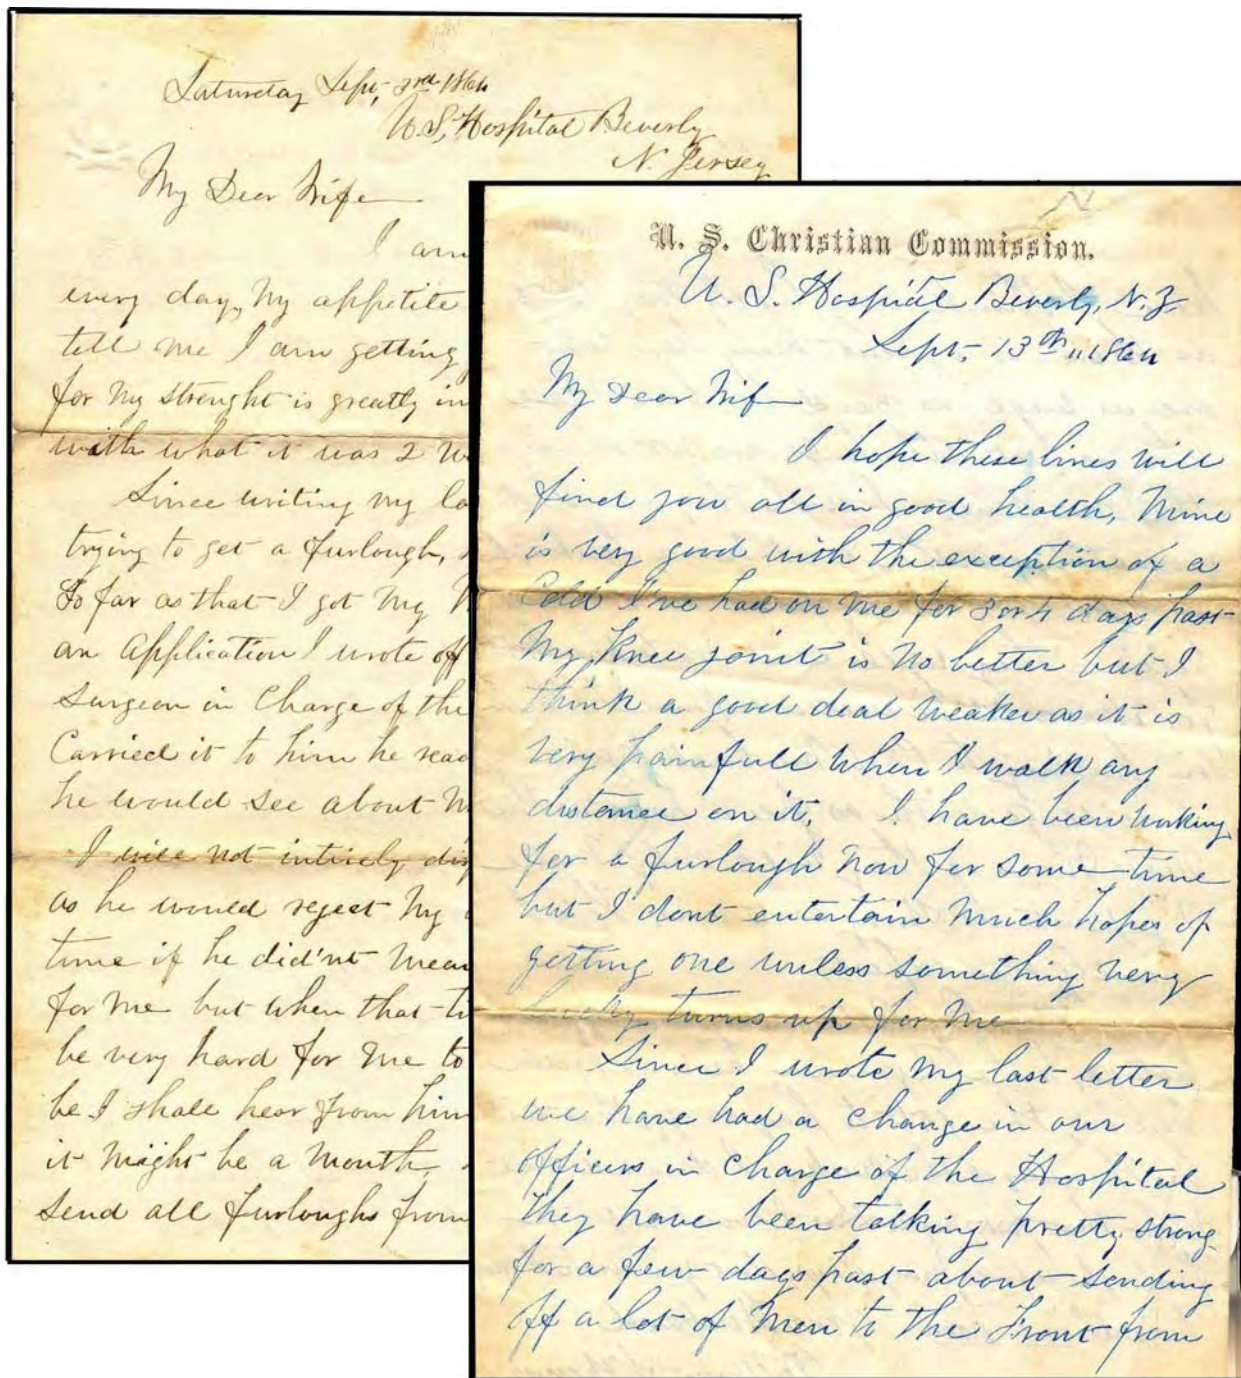 Saturday Sept, 3rd 1864
U.S. Hospital Beverly
N. Jersey
My Dear Wife
I am
every day, My appetite
tell me I am getting
for My strenght is greatly in
with what it was 2 w
Since writing my la
trying to get a furlough,
So far as that I got My
an application I wrote off
Surgeon in Charge of the
Carried it to him he read
he would see about M
I will not intirely dis
as he would reject My
time if he did'nt mean
for Me but when that ti
be very hard for Me to
be I shall hear from him
it might be a Month,
Send all furloughs from
U. S. Christian Commission.
U. S. Hospital Beverly, N. J.
Sept, 13th, 1864
My Dear Wife
I hope these lines will
find you all in good health, Mine
is very good with the exception of a
Cold I've had on me for 3 or 4 days past
My Knee joint is No better but I
think a good deal Weaker as it is
very painfull when I walk any
distance on it. I have been working
for a furlough Now for some time
but I dont entertain Much hopes of
getting one unless something very
lucky turns up for Me
Since I wrote My last letter
we have had a Change in our
officers in Charge of the Hospital
they have been talking pretty strong
for a few days past about sending
off a lot of Men to the Front from